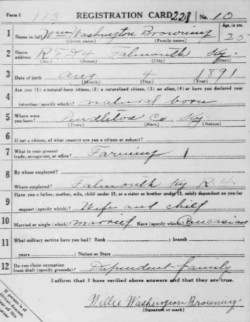 Form 1 113 REGISTRATION CARD 228 No. 10
1 Name in full Wm Washington Browning Age, in yrs 25
(Given name) (Family name)
2 Home address R.F.D. 4 Falmouth Ky.
3 Date of birth Aug 4 1891
(Month) (Day) (Year)
4 Are you (1) a natural-born citizen, (2) a naturalized citizen, (3) an alien, (4) or have you declared your
intention (specify which)? natural born
5 Where were you born? Pendleton Co. Ky
6 If not a citizen, of what country are you a citizen or subject?
7 What is your present trade, occupation, or office? Farming
8 By whom employed?
Where employed? Falmouth Ky R.4
9 Have you a father, mother, wife, child under 12, or a sister or brother under 12, solely dependent on you for
support (specify which)? Wife and child
10 Married or single (which)? Married Race (specify which)? Caucasian
11 What military service have you had? Rank ; branch
years ; Nation or State
12 Do you claim exemption from draft (specify grounds)? Dependent family
I affirm that I have verified above answers and that they are true.
Willie Washington Browning
(Signature or mark)